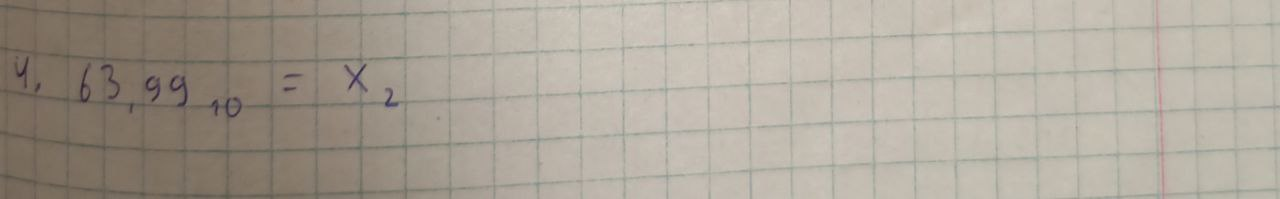 4. 63,99₁₀ = X₂